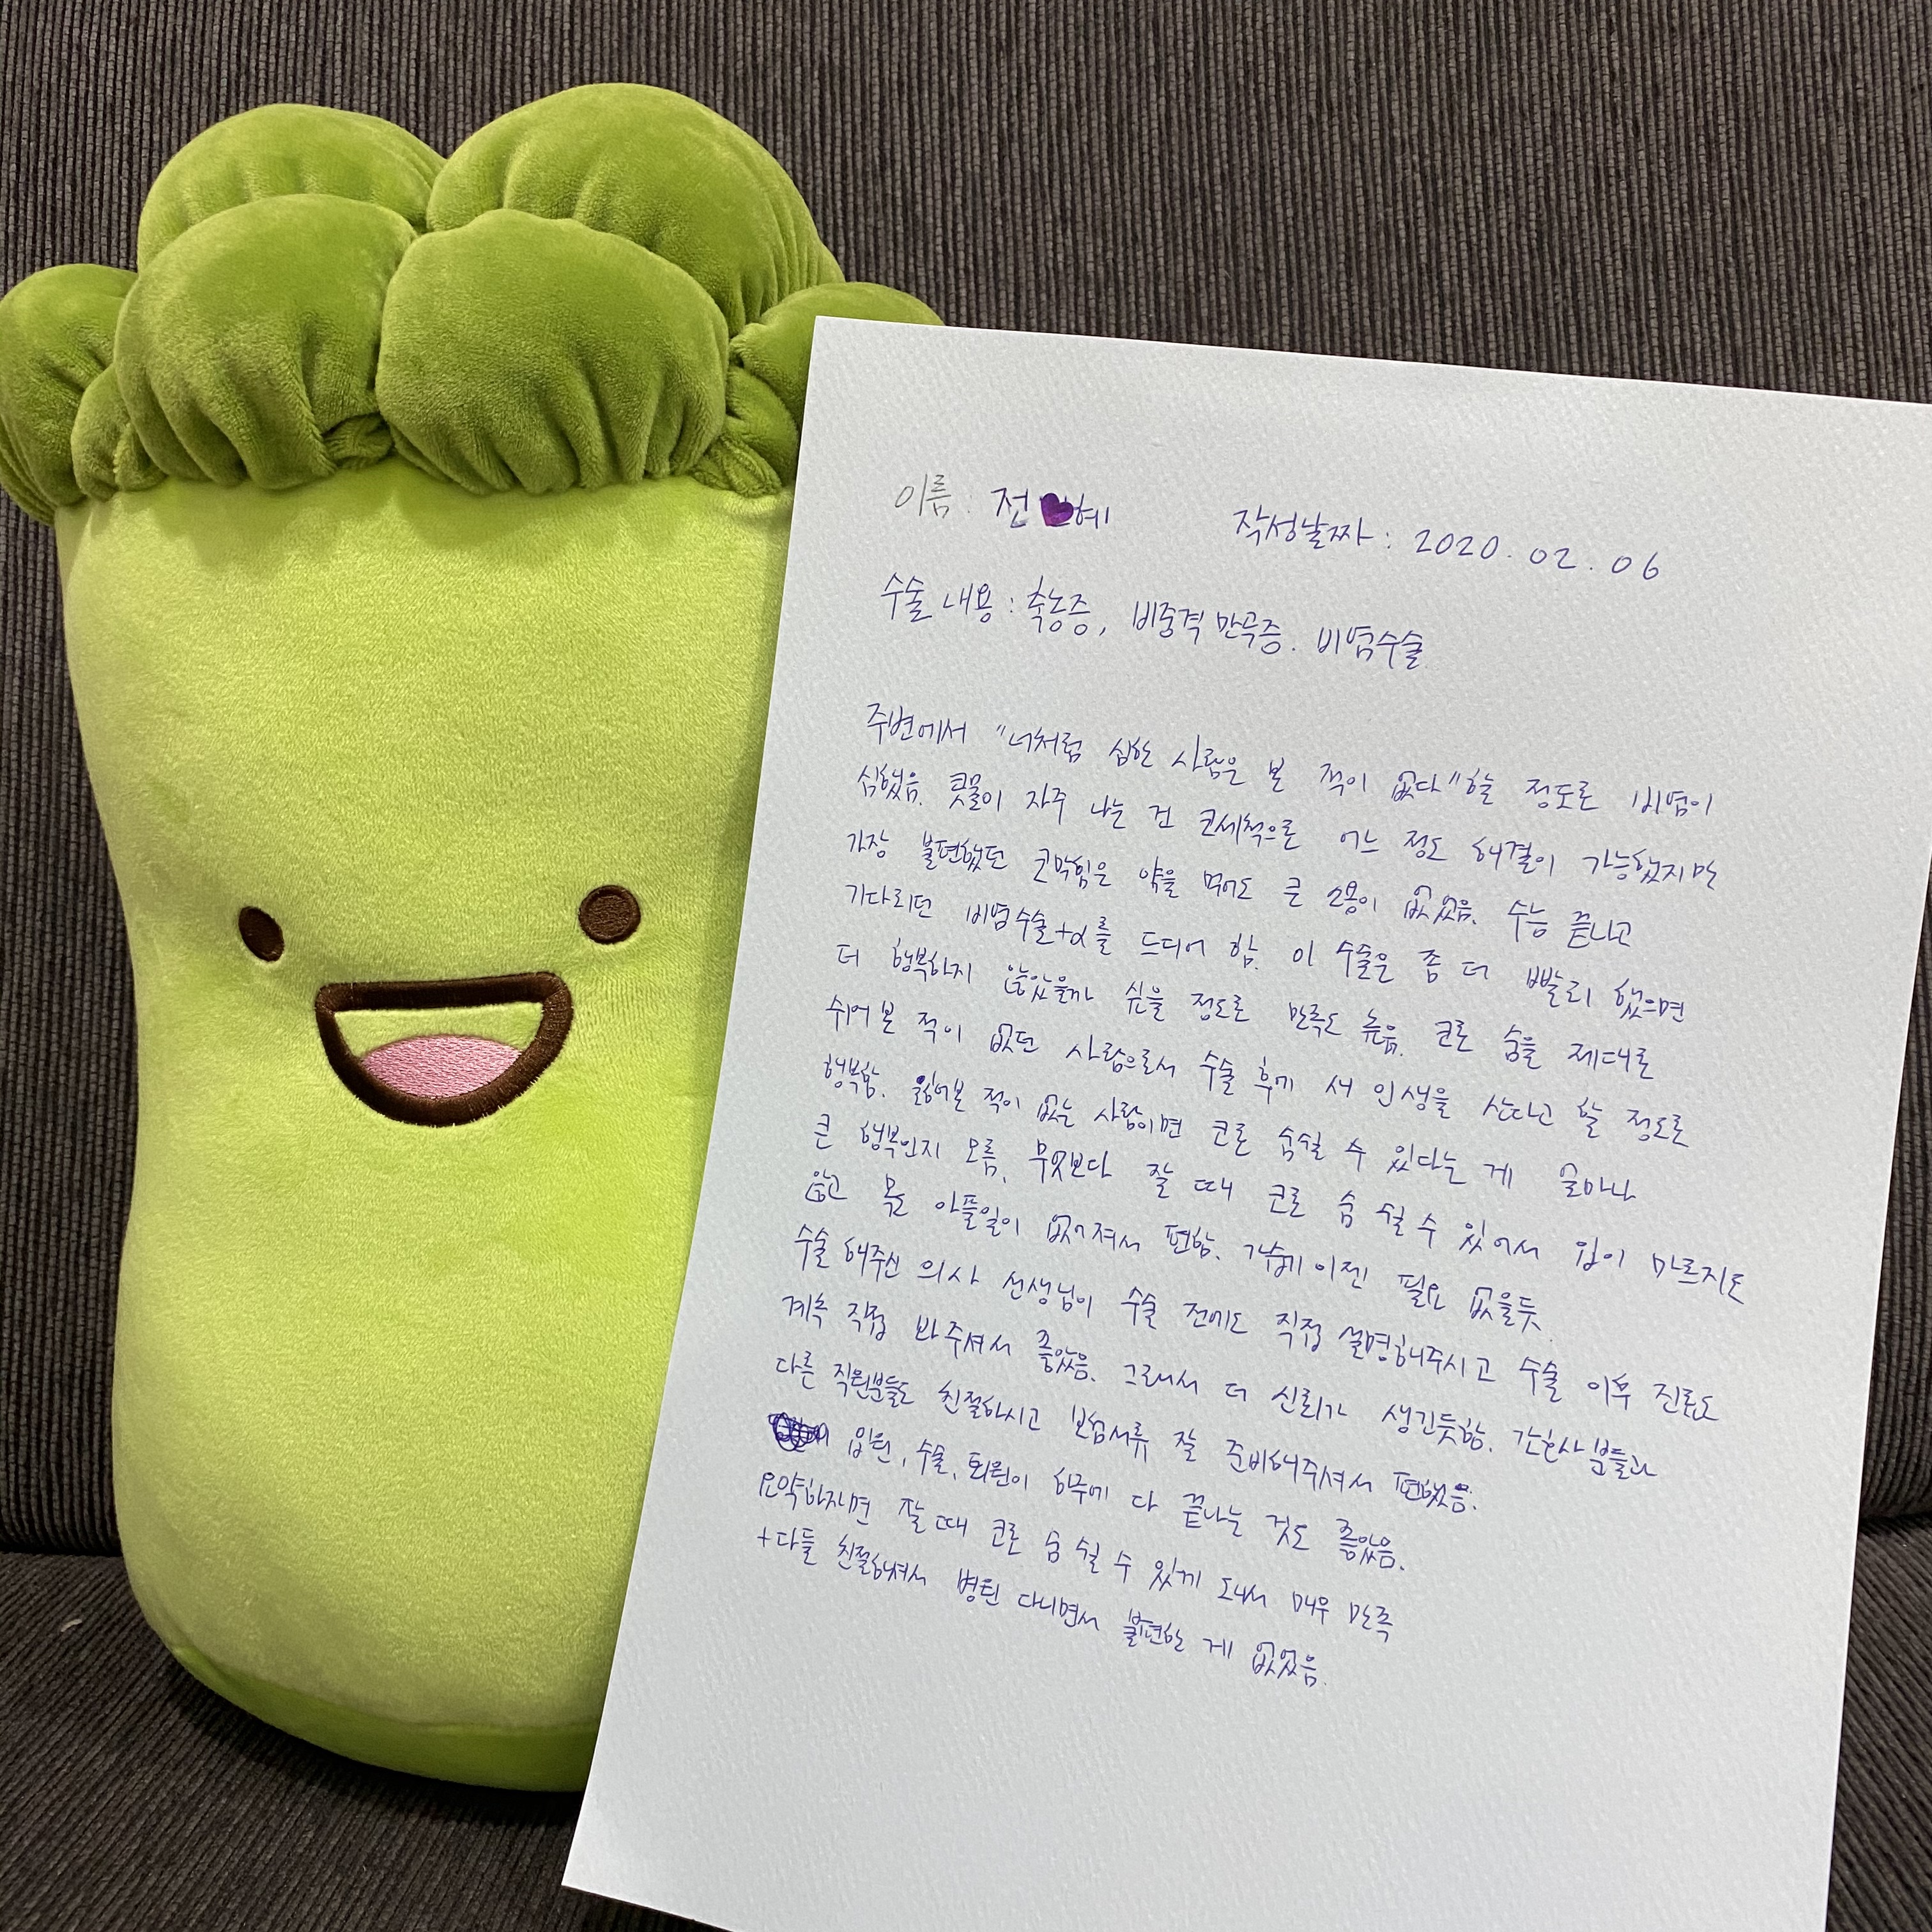 이름 : 전 혜 작성날짜 : 2020. 02. 06
수술 내용 : 축농증, 비중격 만곡증. 비염수술
주변에서 "너처럼 심한 사람은 본 적이 없다"할 정도로 비염이
심했음. 콧물이 자주 나는 건 코세척으로 어느 정도 해결이 가능했지만
가장 불편했던 코막힘은 약을 먹어도 큰 소용이 없었음. 수능 끝나고
기다리던 비염수술+α를 드디어 함. 이 수술은 좀 더 빨리 했으면
더 행복하지 않았을까 싶을 정도로 만족도 높음. 코로 숨을 제대로
쉬어 본 적이 없던 사람으로서 수술 후에 새 인생을 산다고 할 정도로
행복함. 잃어본 적이 없는 사람이면 코로 숨쉴 수 있다는 게 얼마나
큰 행복인지 모름. 무엇보다 잘 때 코로 숨 쉴 수 있어서 입이 마르지도
않고 목도 아플일이 없어져서 편함. 가습기 이젠 필요 없을듯.
수술 해주신 의사 선생님이 수술 전에도 직접 설명해주시고 수술 이후 진료도
계속 직접 봐주셔서 좋았음. 그래서 더 신뢰가 생긴듯함. 간호사분들과
다른 직원분들도 친절하시고 보험서류 잘 준비해주셔서 편했음.
입원, 수술, 퇴원이 하루에 다 끝나는 것도 좋았음.
요약하자면 잘 때 코로 숨 쉴 수 있게 돼서 매우 만족
+다들 친절하셔서 병원 다니면서 불편한 게 없었음.